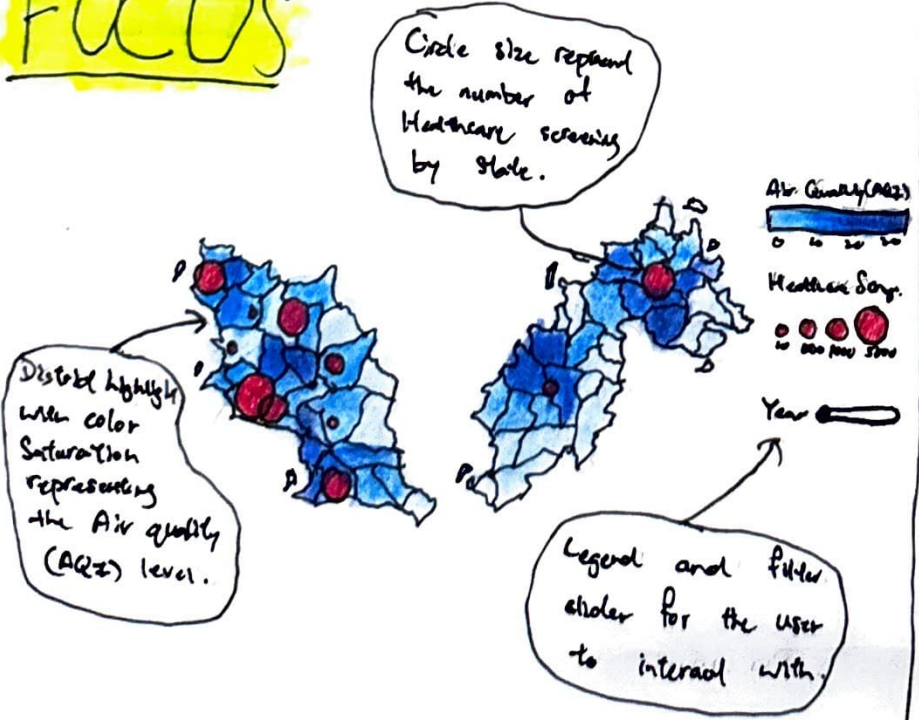 FOCUS
Circle size represend
the number of
Healthcare screening
by state.
Air Quality (AQI)
0 10 20 30
Healthcare
10 1000 5000
Year
District highligh
with color
Saturation
representing
the Air quality
(AQI) level.
Legend and filter
slider for the user
to interact with.